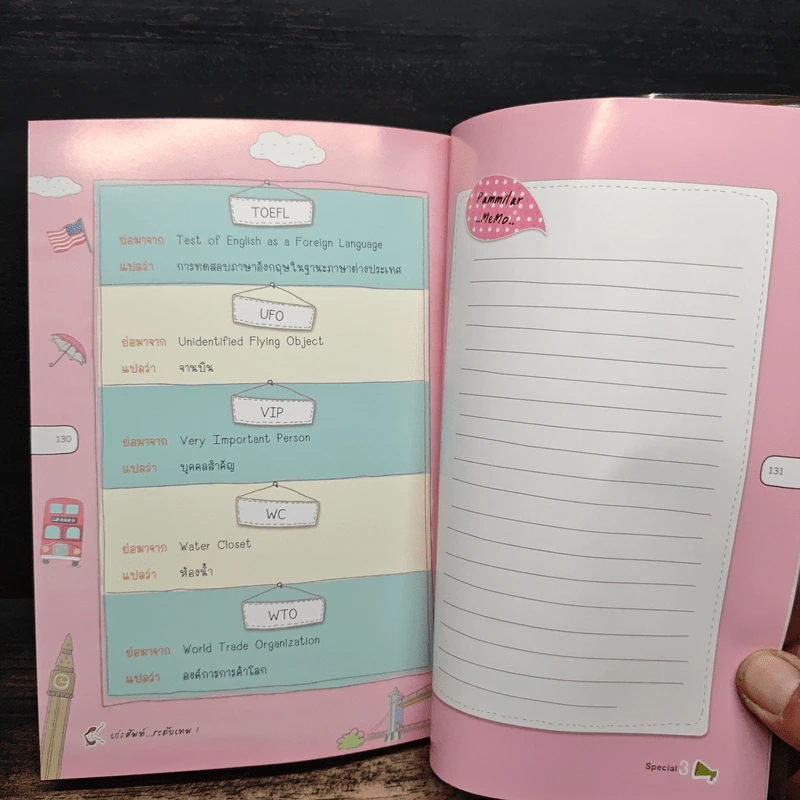 TOEFL
ย่อมาจาก Test of English as a Foreign Language
แปลว่า การทดสอบภาษาอังกฤษในฐานะภาษาต่างประเทศ
UFO
ย่อมาจาก Unidentified Flying Object
แปลว่า จานบิน
VIP
ย่อมาจาก Very Important Person
แปลว่า บุคคลสำคัญ
WC
ย่อมาจาก Water Closet
แปลว่า ห้องน้ำ
WTO
ย่อมาจาก World Trade Organization
แปลว่า องค์การการค้าโลก
130
เก่งศัพท์...ระดับเทพ !
Pammilar
..MeMo..
131
Special 3